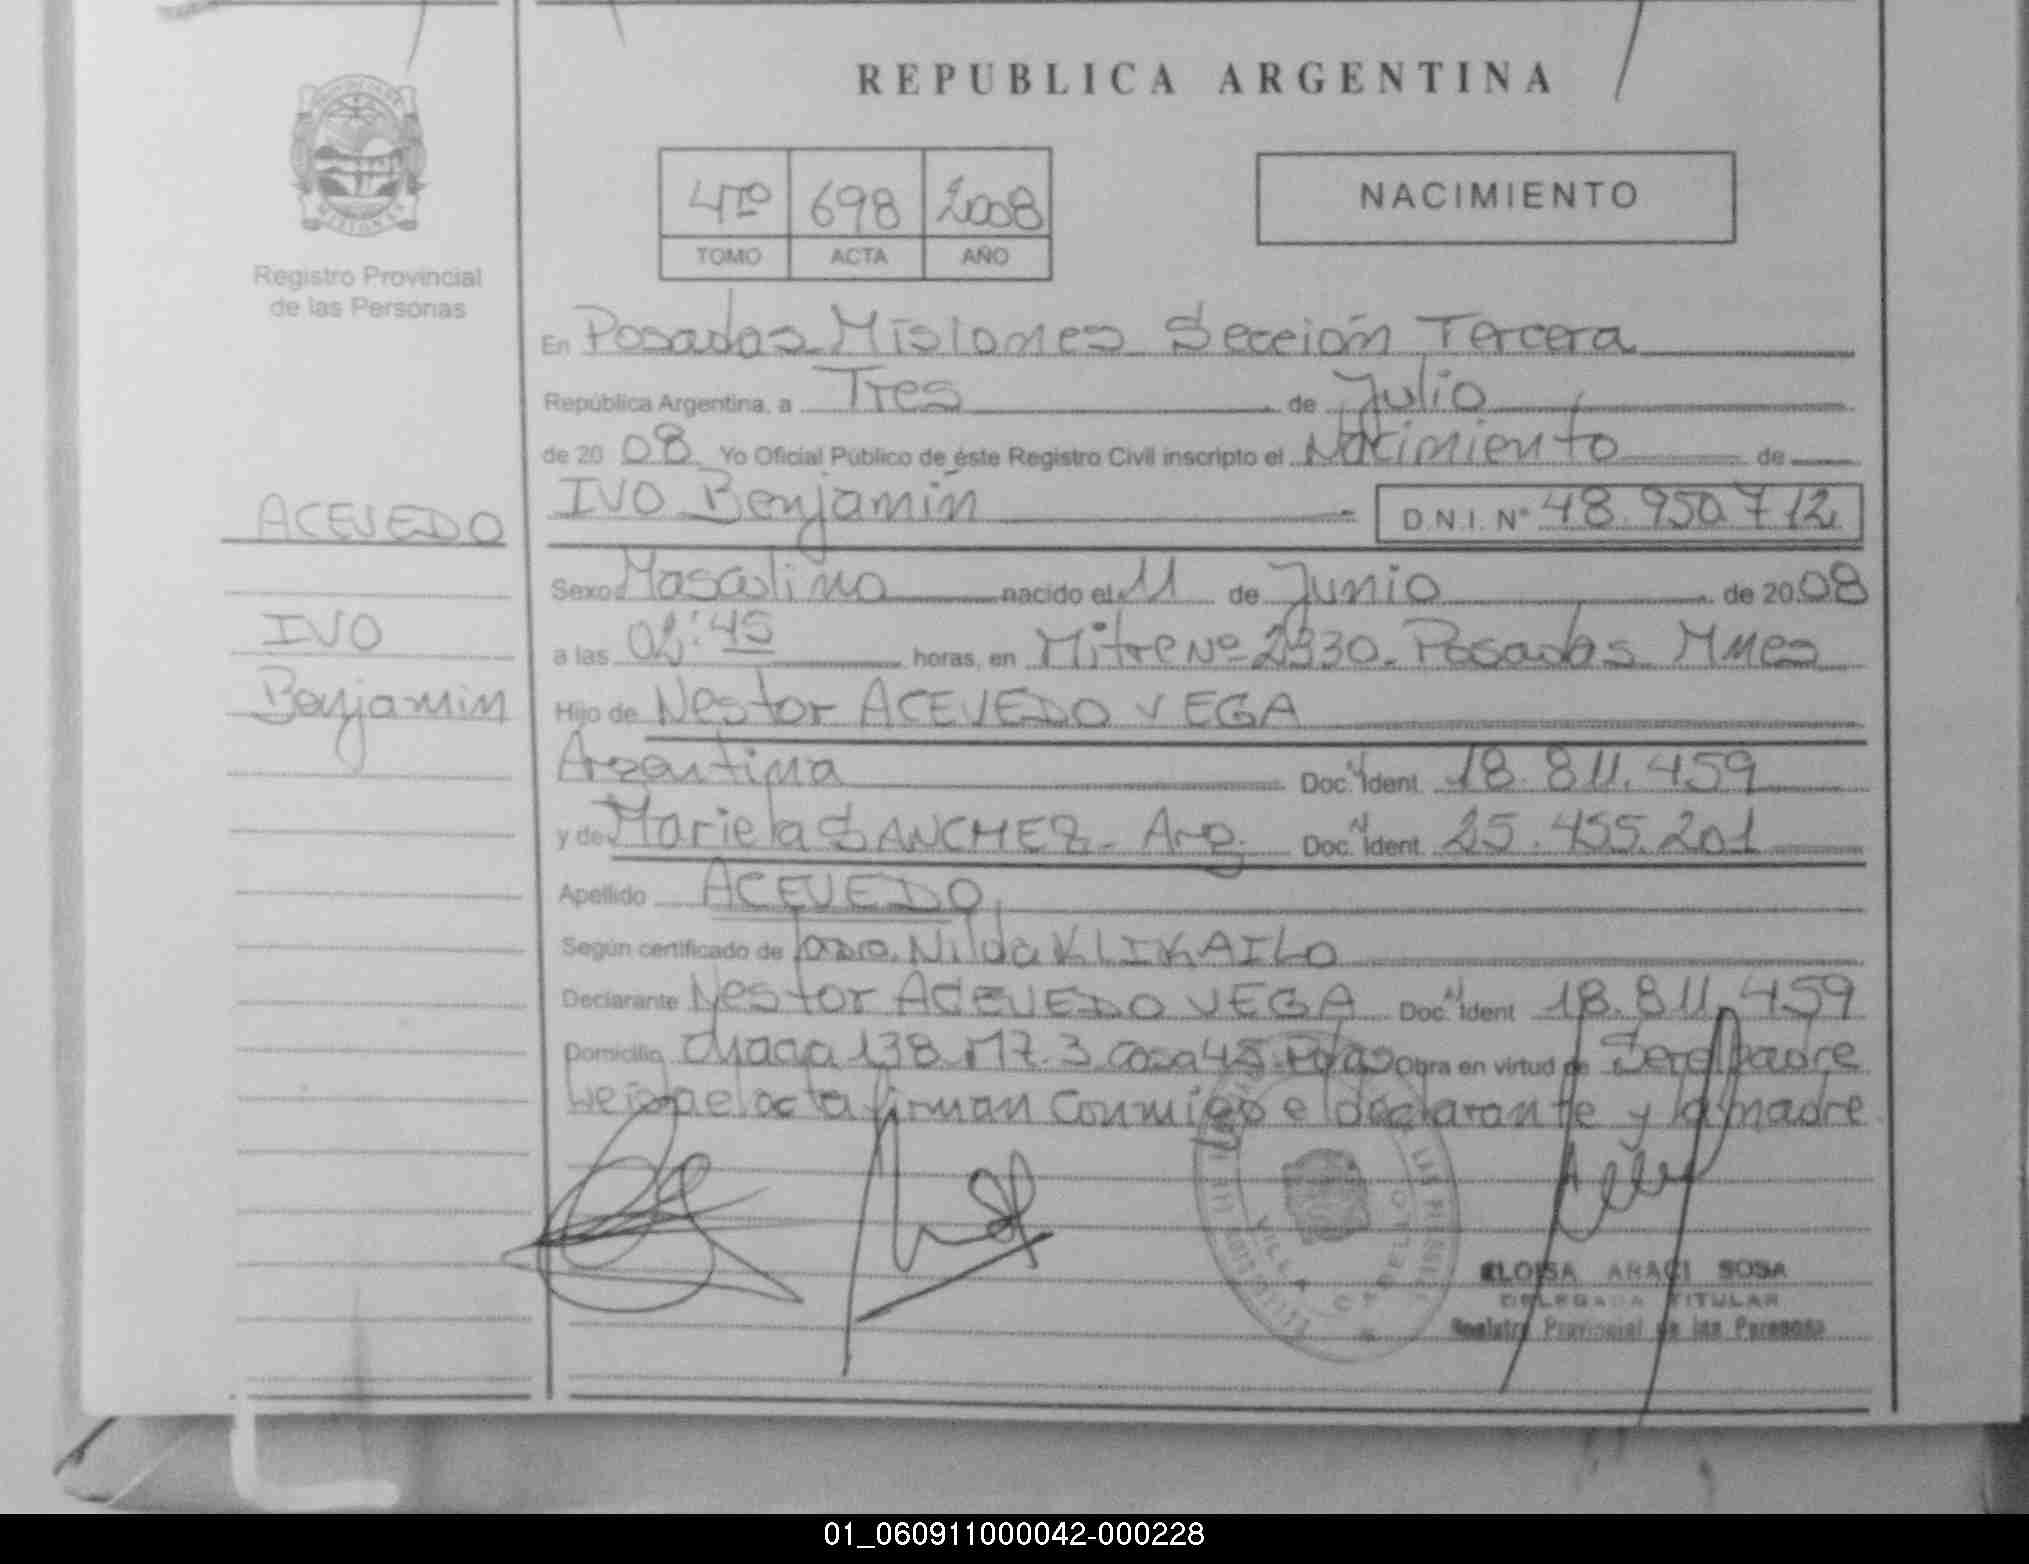 REPUBLICA ARGENTINA
4to 698 2008
TOMO ACTA AÑO
NACIMIENTO
Registro Provincial
de las Personas
ACEVEDO
IVO
Benjamin
En Posadas Misiones Sección Tercera
República Argentina, a Tres de Julio
de 2008 Yo Oficial Público de éste Registro Civil inscripto el Nacimiento de
IVO Benjamín D.N.I. Nº 48.950.712
Sexo Masculino nacido el 11 de Junio de 2008
a las 02:45 horas, en Mitre Nº 2330. Posadas Mnes
Hijo de Nestor ACEVEDO VEGA
Argentina Doc. Ident. 18.811.459
y de Mariela SANCHEZ - Arg. Doc. Ident. 25.455.201
Apellido ACEVEDO
Según certificado de Nilda KLIKAILO
Declarante Nestor ACEVEDO VEGA Doc. Ident 18.811.459
Domicilio Chaca 138 MZ. 3 Casa 45 Pdas Obra en virtud de Ser el padre
Leida el acta firman Conmigo el declarante y la madre
VILLA CABELLO
ELOISA ARACI SOSA
DELEGADA TITULAR
Registro Provincial de las Personas
01_060911000042-000228